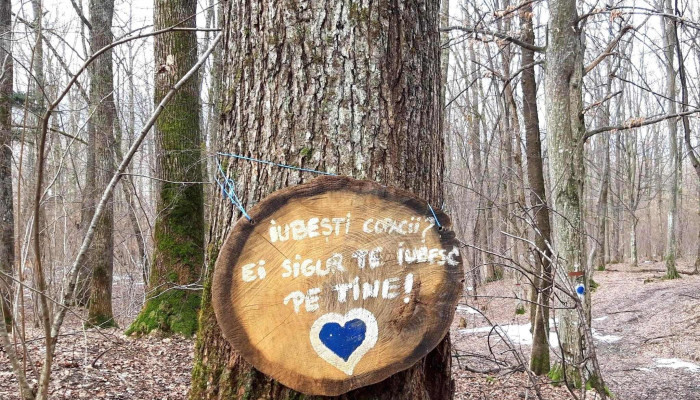 iUBEȘTi COPACii?
Ei SiGUR TE iUBESC
PE TiNE!